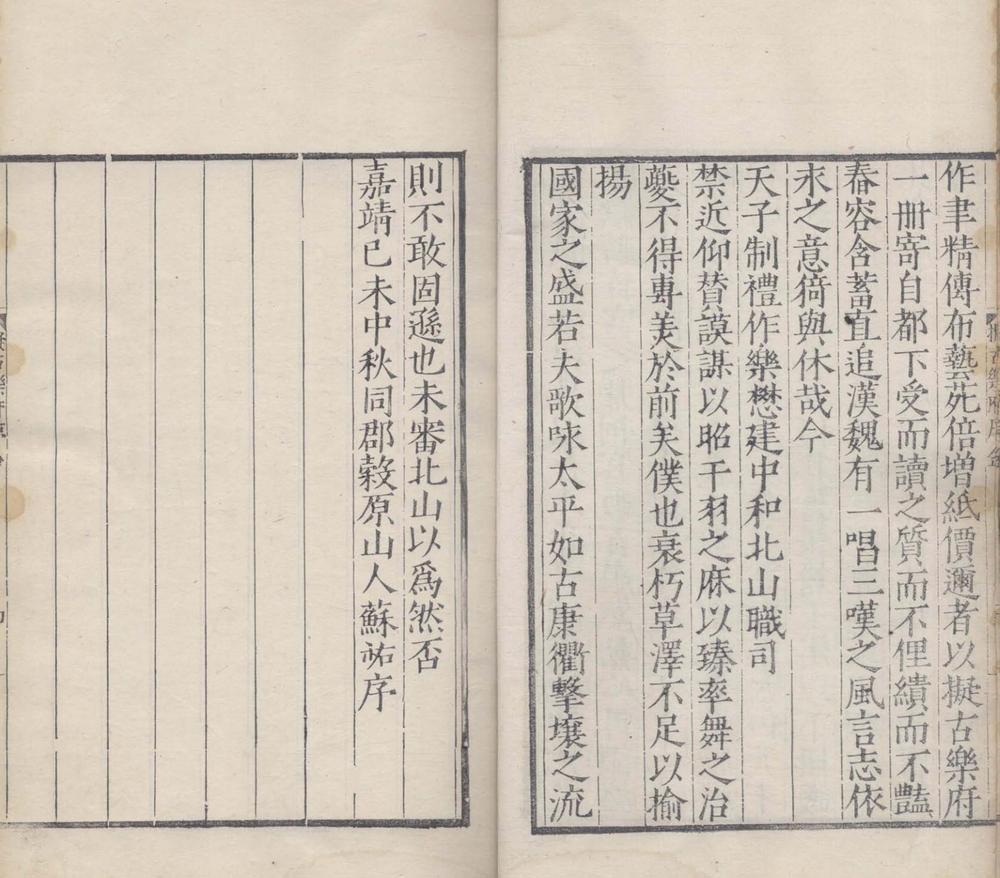 作聿精傳布藝苑倍增紙價邇者以擬古樂府
一冊寄自都下受而讀之質而不俚績而不豔
舂容含蓄直追漢魏有一唱三嘆之風言志依
永之意猗與休哉今
天子制禮作樂懋建中和北山職司
禁近仰賛謨謀以昭干羽之庥以臻率舞之治
夔不得專美於前矣僕也衰朽草澤不足以揄
揚
國家之盛若夫歌咏太平如古康衢擊壤之流
則不敢固遜也未審北山以爲然否
嘉靖己未中秋同郡穀原山人蘇祐序